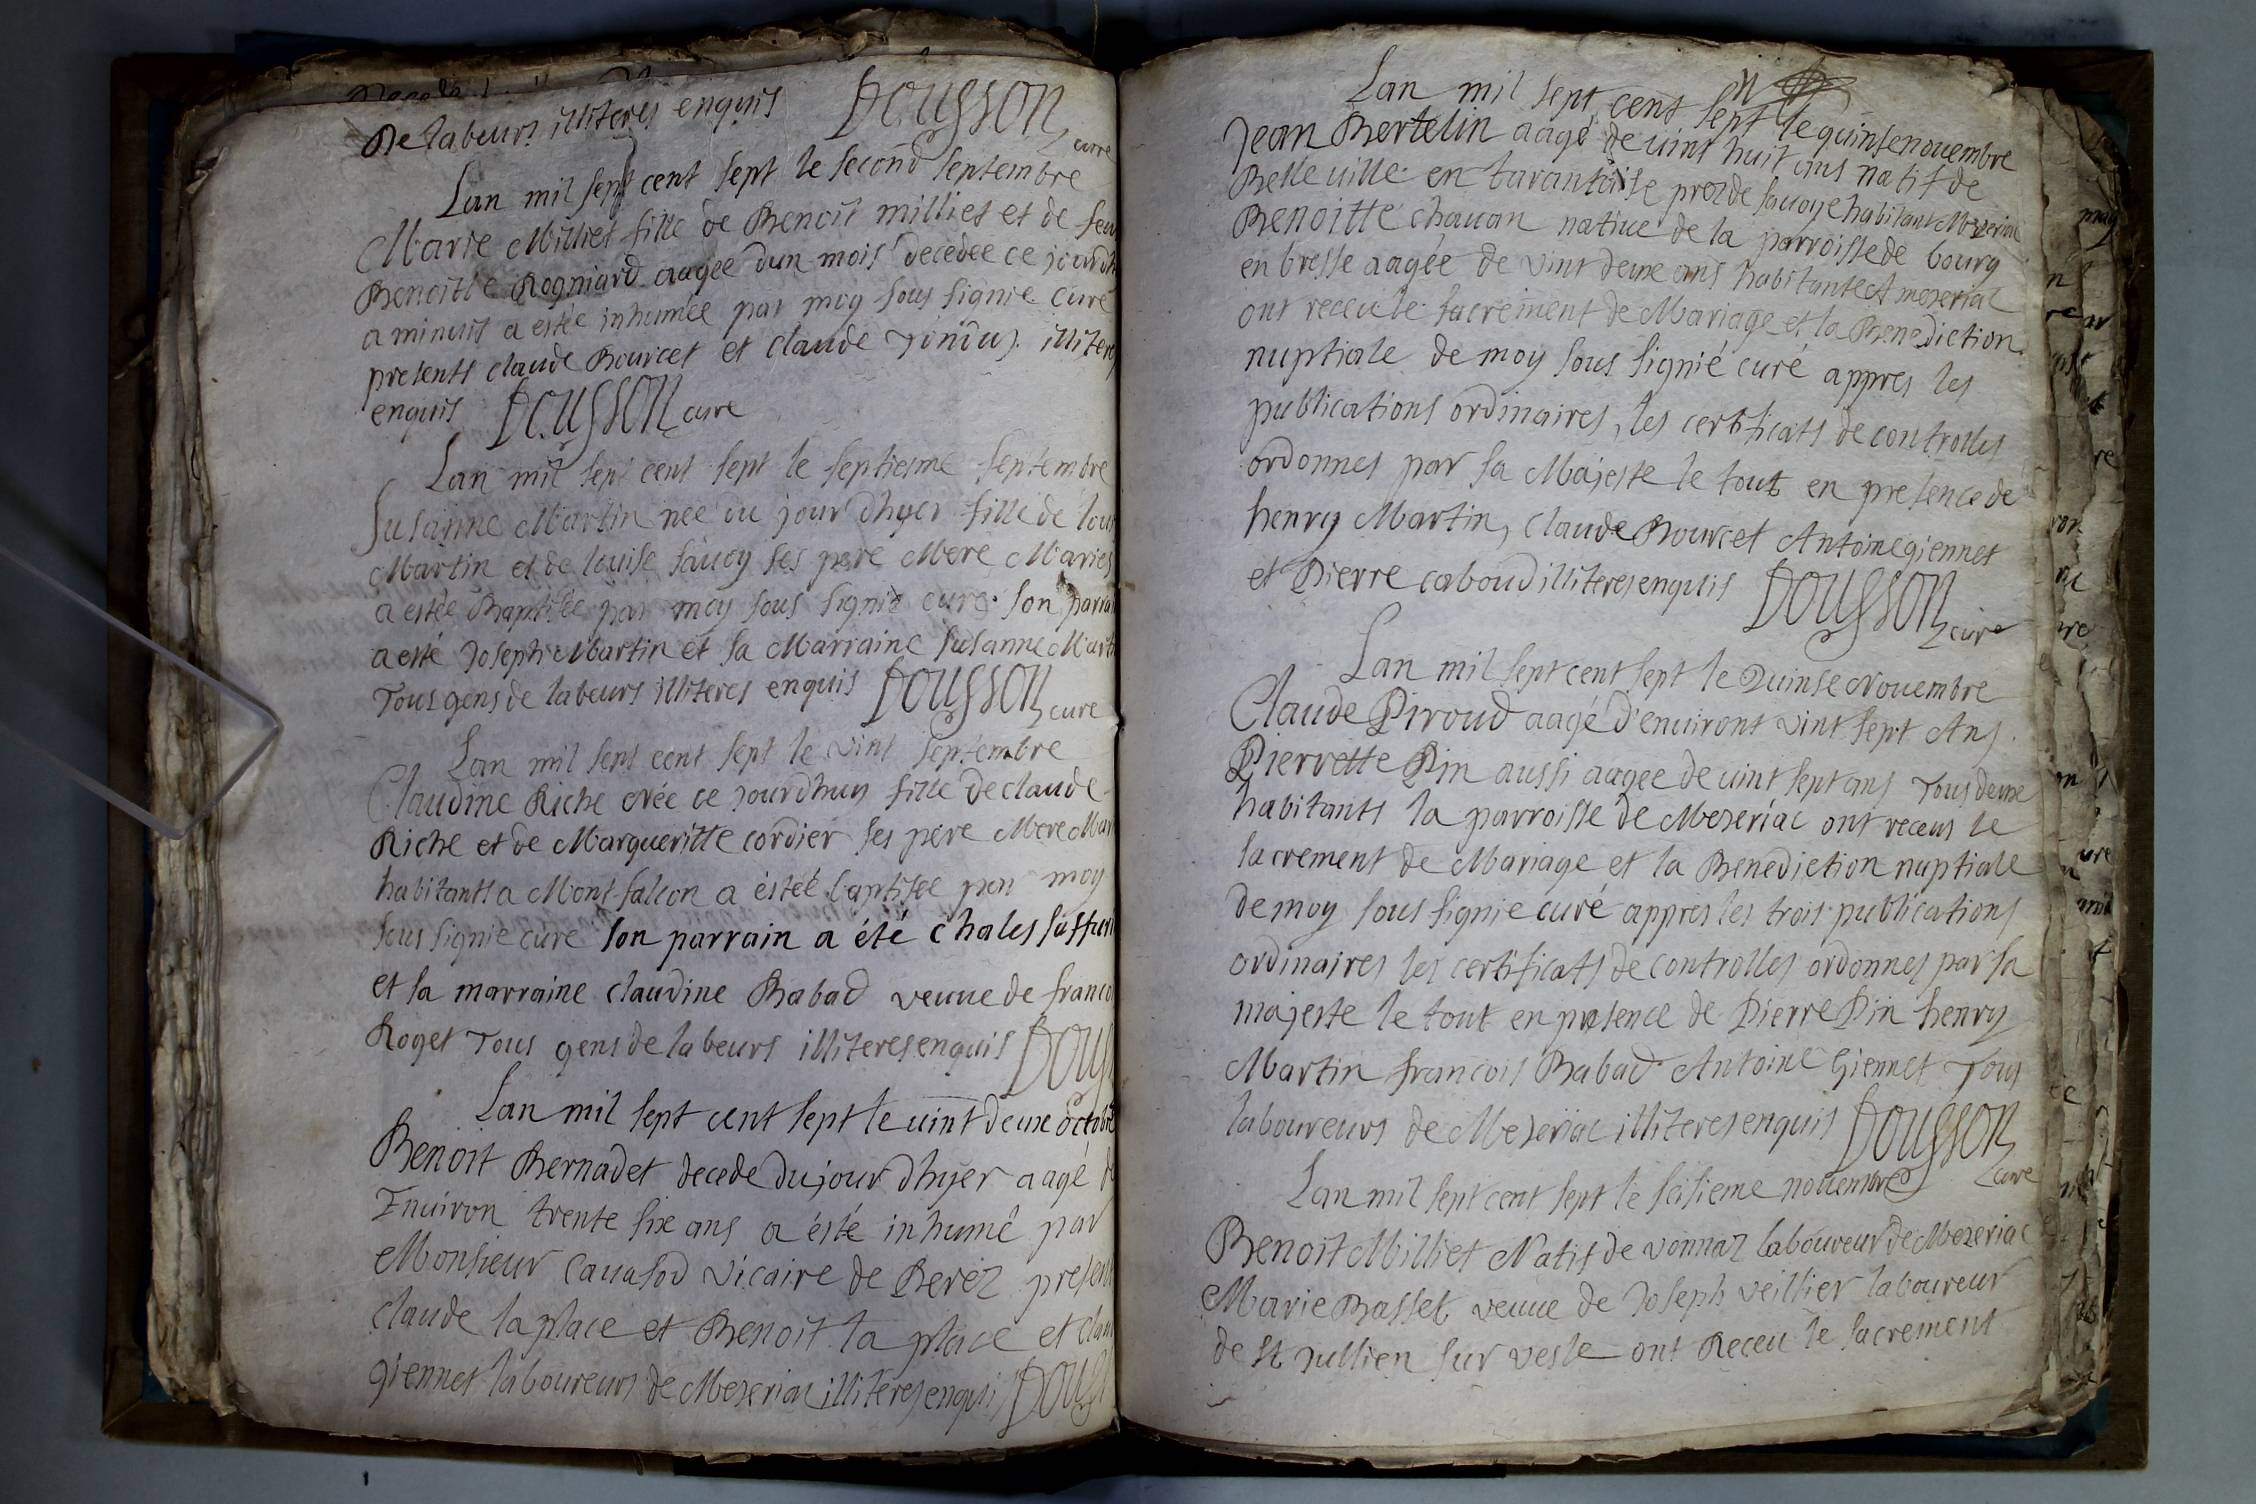 De labeurs illiteres enquis Dousson curé
Lan mil sept cent sept le second septembre
Marie Milliet fille de Benoit milliet et de feu
Benoitte Rogniard aagée dun mois decedee ce jourdh
a minuit a estée inhumée par moy sous signie curé
presents claude Bourcet et claude illitere
enquis Dousson cure
Lan mil sept cent sept le septiesme septembre
Susanne Martin née du jour dhyer fille de loui
Martin et de louise sauoy ses pere Mere Maries
a estée Baptisée par moy sous signié curé son parrai
a esté Joseph Martin et sa Marraine Susanne Mart
Tous gens de labeurs illiteres enquis Dousson cure
Lan mil sept cent sept le vint septembre
Claudine Riche née ce jourdhuy fille de claude
Riche et de Margueritte cordier ses pere Mere Mar
habitants a Montfalcon a estée baptisée par moy
sous signie cure son parrain a été chales
et sa marraine claudine Babad veuue de franco
Roget Tous gens de labeurs illiteres enquis Dous
Lan mil sept cent sept le uint deux octobre
Benoit Bernadet decede du jour dhyer aagé d
Enuiron trente six ans a ésté inhumé par
Monsieur Cauasod vicaire de Beréz present
claude la place et Benoit la place et clau
giennet laboureurs de Mezeriac illiteres enquis Dous
Lan mil sept cent sept le quinse nouembre
Jean Bertelin aagé de uint huit ans natif de
Belleuille en tarantaise prez de sauoye habitant Mezeriac
Benoitte chauan natiue de la parroisse de bourg
en bresse aagée de vint deux ans habitante A mezeriac
ont receu le sacrement de Mariage et la Benediction
nuptiale de moy sous signié curé appres les
publications ordinaires, les certificats de controlles
ordonnes par sa Majeste le tout en presence de
henry Martin, claude Bourcet Antoine giennet
et Pierre caboud illiteres enquis Dousson cure
Lan mil sept cent sept le Quinse Nouembre
Claude Piroud aagé d'enuiront vint sept Ans
Pierrette Pin aussi aagee de uint sept ans Tous deux
habitants la parroisse de Mezeriac ont receus le
sacrement de Mariage et la Benediction nuptiale
de moy sous signie curé appres les trois publications
ordinaires les certificats de controlles ordonnes par sa
majeste le tout en presence de Pierre Pin henry
Martin françois Babad Antoine Giennet Tous
laboureurs de Mezeriac illiteres enquis Dousson cure
Lan mil sept cent sept le sesieme nouembre
Benoit Milliet Natif de vonnaz laboureur de Mezeriac
Marie Basset veuue de Joseph veillier laboureur
de st Jullien sur vesle ont Receu le sacrement